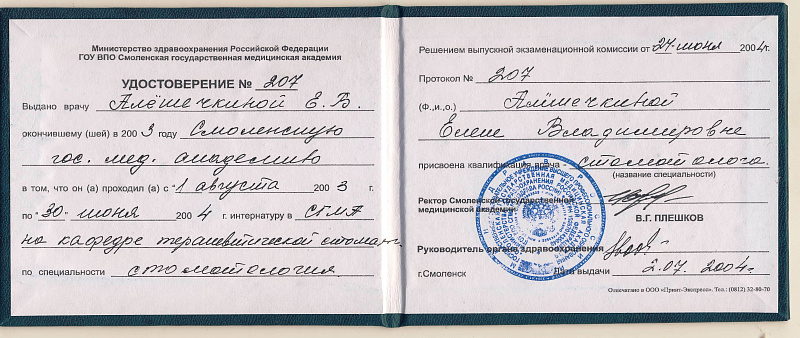 Министерство здравоохранения Российской Федерации
ГОУ ВПО Смоленская государственная медицинская академия
УДОСТОВЕРЕНИЕ № 207
Выдано врачу Алёшечкиной Е.В.
окончившему (шей) в 2003 году Смоленскую
гос. мед. академию
в том, что он (а) проходил (а) с "1 августа 2003 г.
по "30" июня 2004 г. интернатуру в СГМА
на кафедре терапевтической стомат.
по специальности стоматология.
Решением выпускной экзаменационной комиссии от 24 июня 2004г.
Протокол № 207
(Ф.,и.,о.) Алёшечкиной
Елене Владимировне
присвоена квалификация врача - стоматолога.
(название специальности)
Ректор Смоленской государственной
медицинской академии
В.Г. ПЛЕШКОВ
Руководитель органа здравоохранения
г.Смоленск Дата выдачи 2.07. 2004г.
Отпечатано в ООО «Принт-Экспресс». Тел.: (0812) 32-80-70